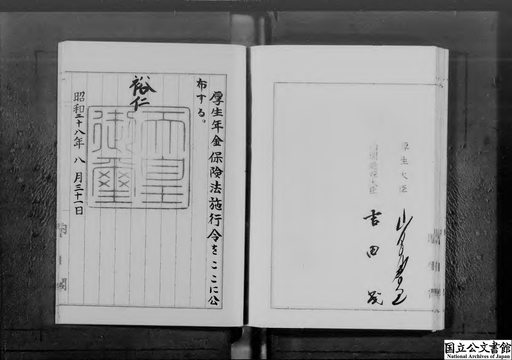 厚生大臣
内閣総理大臣 吉田茂
厚生年金保険法施行令をここに公
布する。
裕仁
天皇御璽
昭和二十八年八月三十一日
内閣
国立公文書館
National Archives of Japan